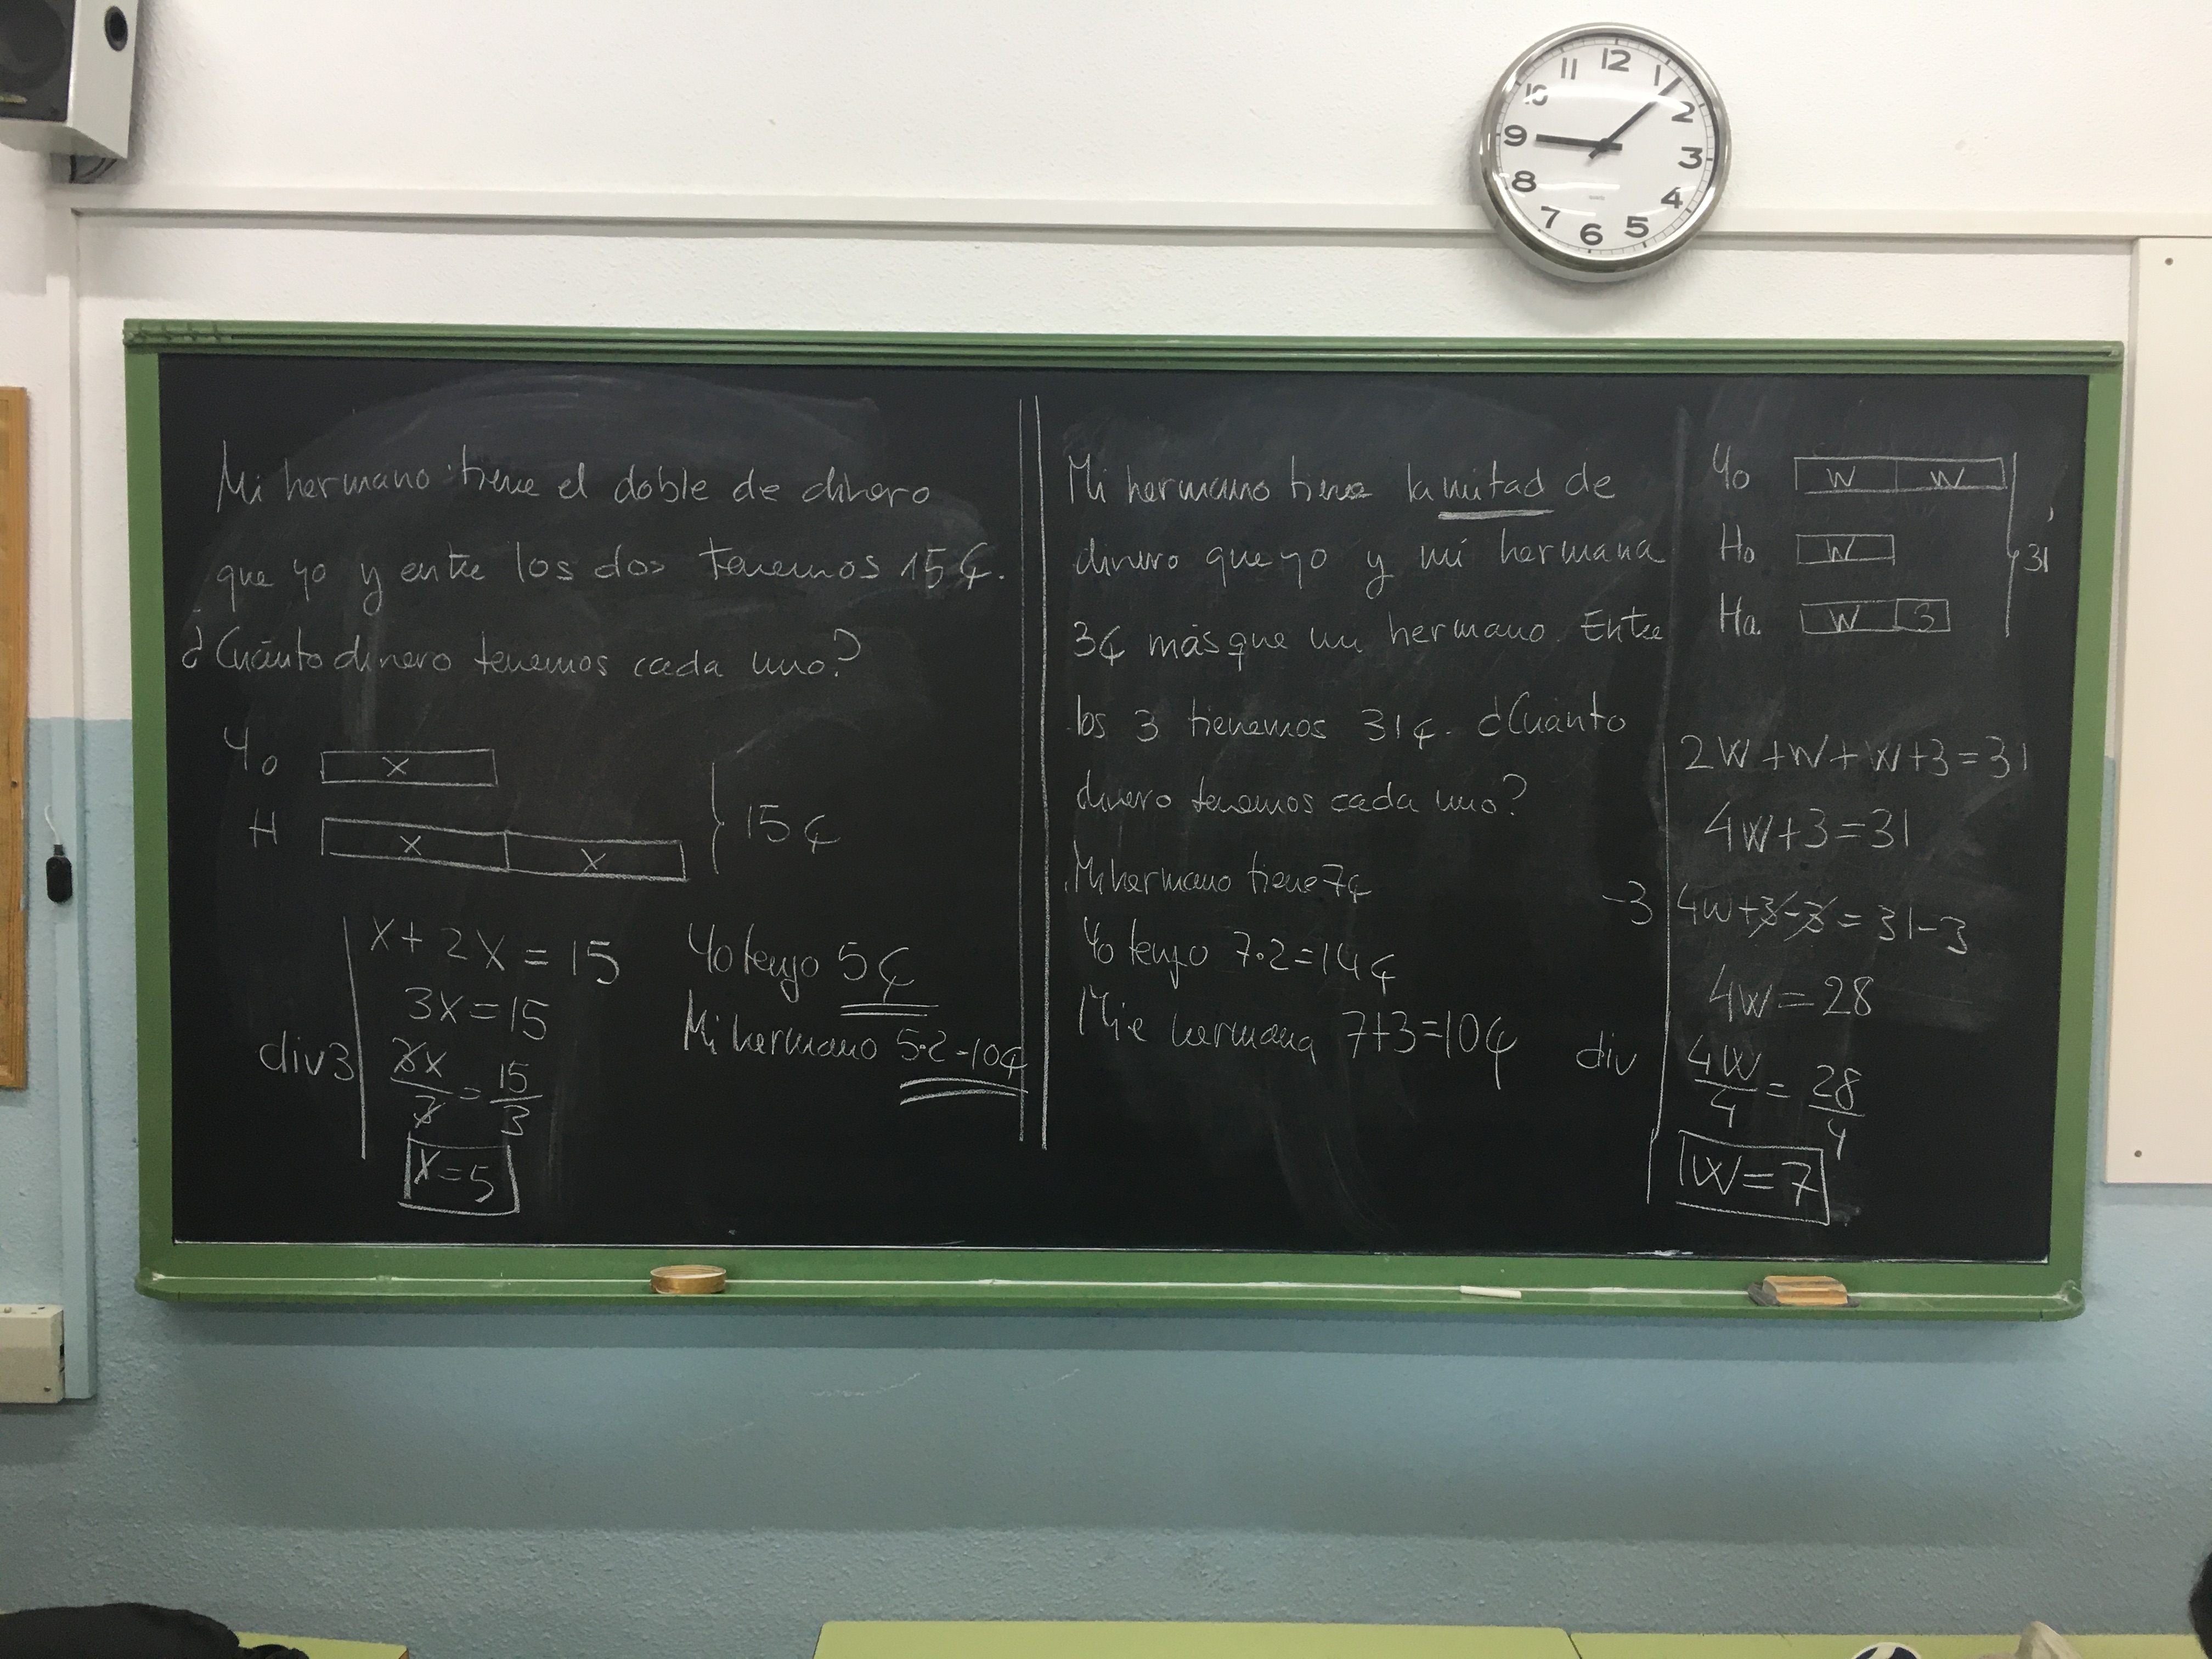 12
1
2
3
4
5
6
7
8
9
10
11
Mi hermano tiene el doble de dinero
que yo y entre los dos tenemos 15€.
¿Cuánto dinero tenemos cada uno?
Yo x
H x x
15€
x + 2x = 15
3x = 15
div 3 3x/3 = 15/3
x = 5
Yo tengo 5€
Mi hermano 5·2=10€
Mi hermano tiene la mitad de
dinero que yo y mi hermana
3€ más que mi hermano. Entre
los 3 tienemos 31€. ¿Cuánto
dinero tenemos cada uno?
Mi hermano tiene 7€
Yo tengo 7·2=14€
Mie hermana 7+3=10€
Yo W W
Ho W
Ha. W 3
31
2W+W+W+3=31
4W+3=31
-3 4W+3-3=31-3
4W=28
div 4W/4 = 28/4
W=7